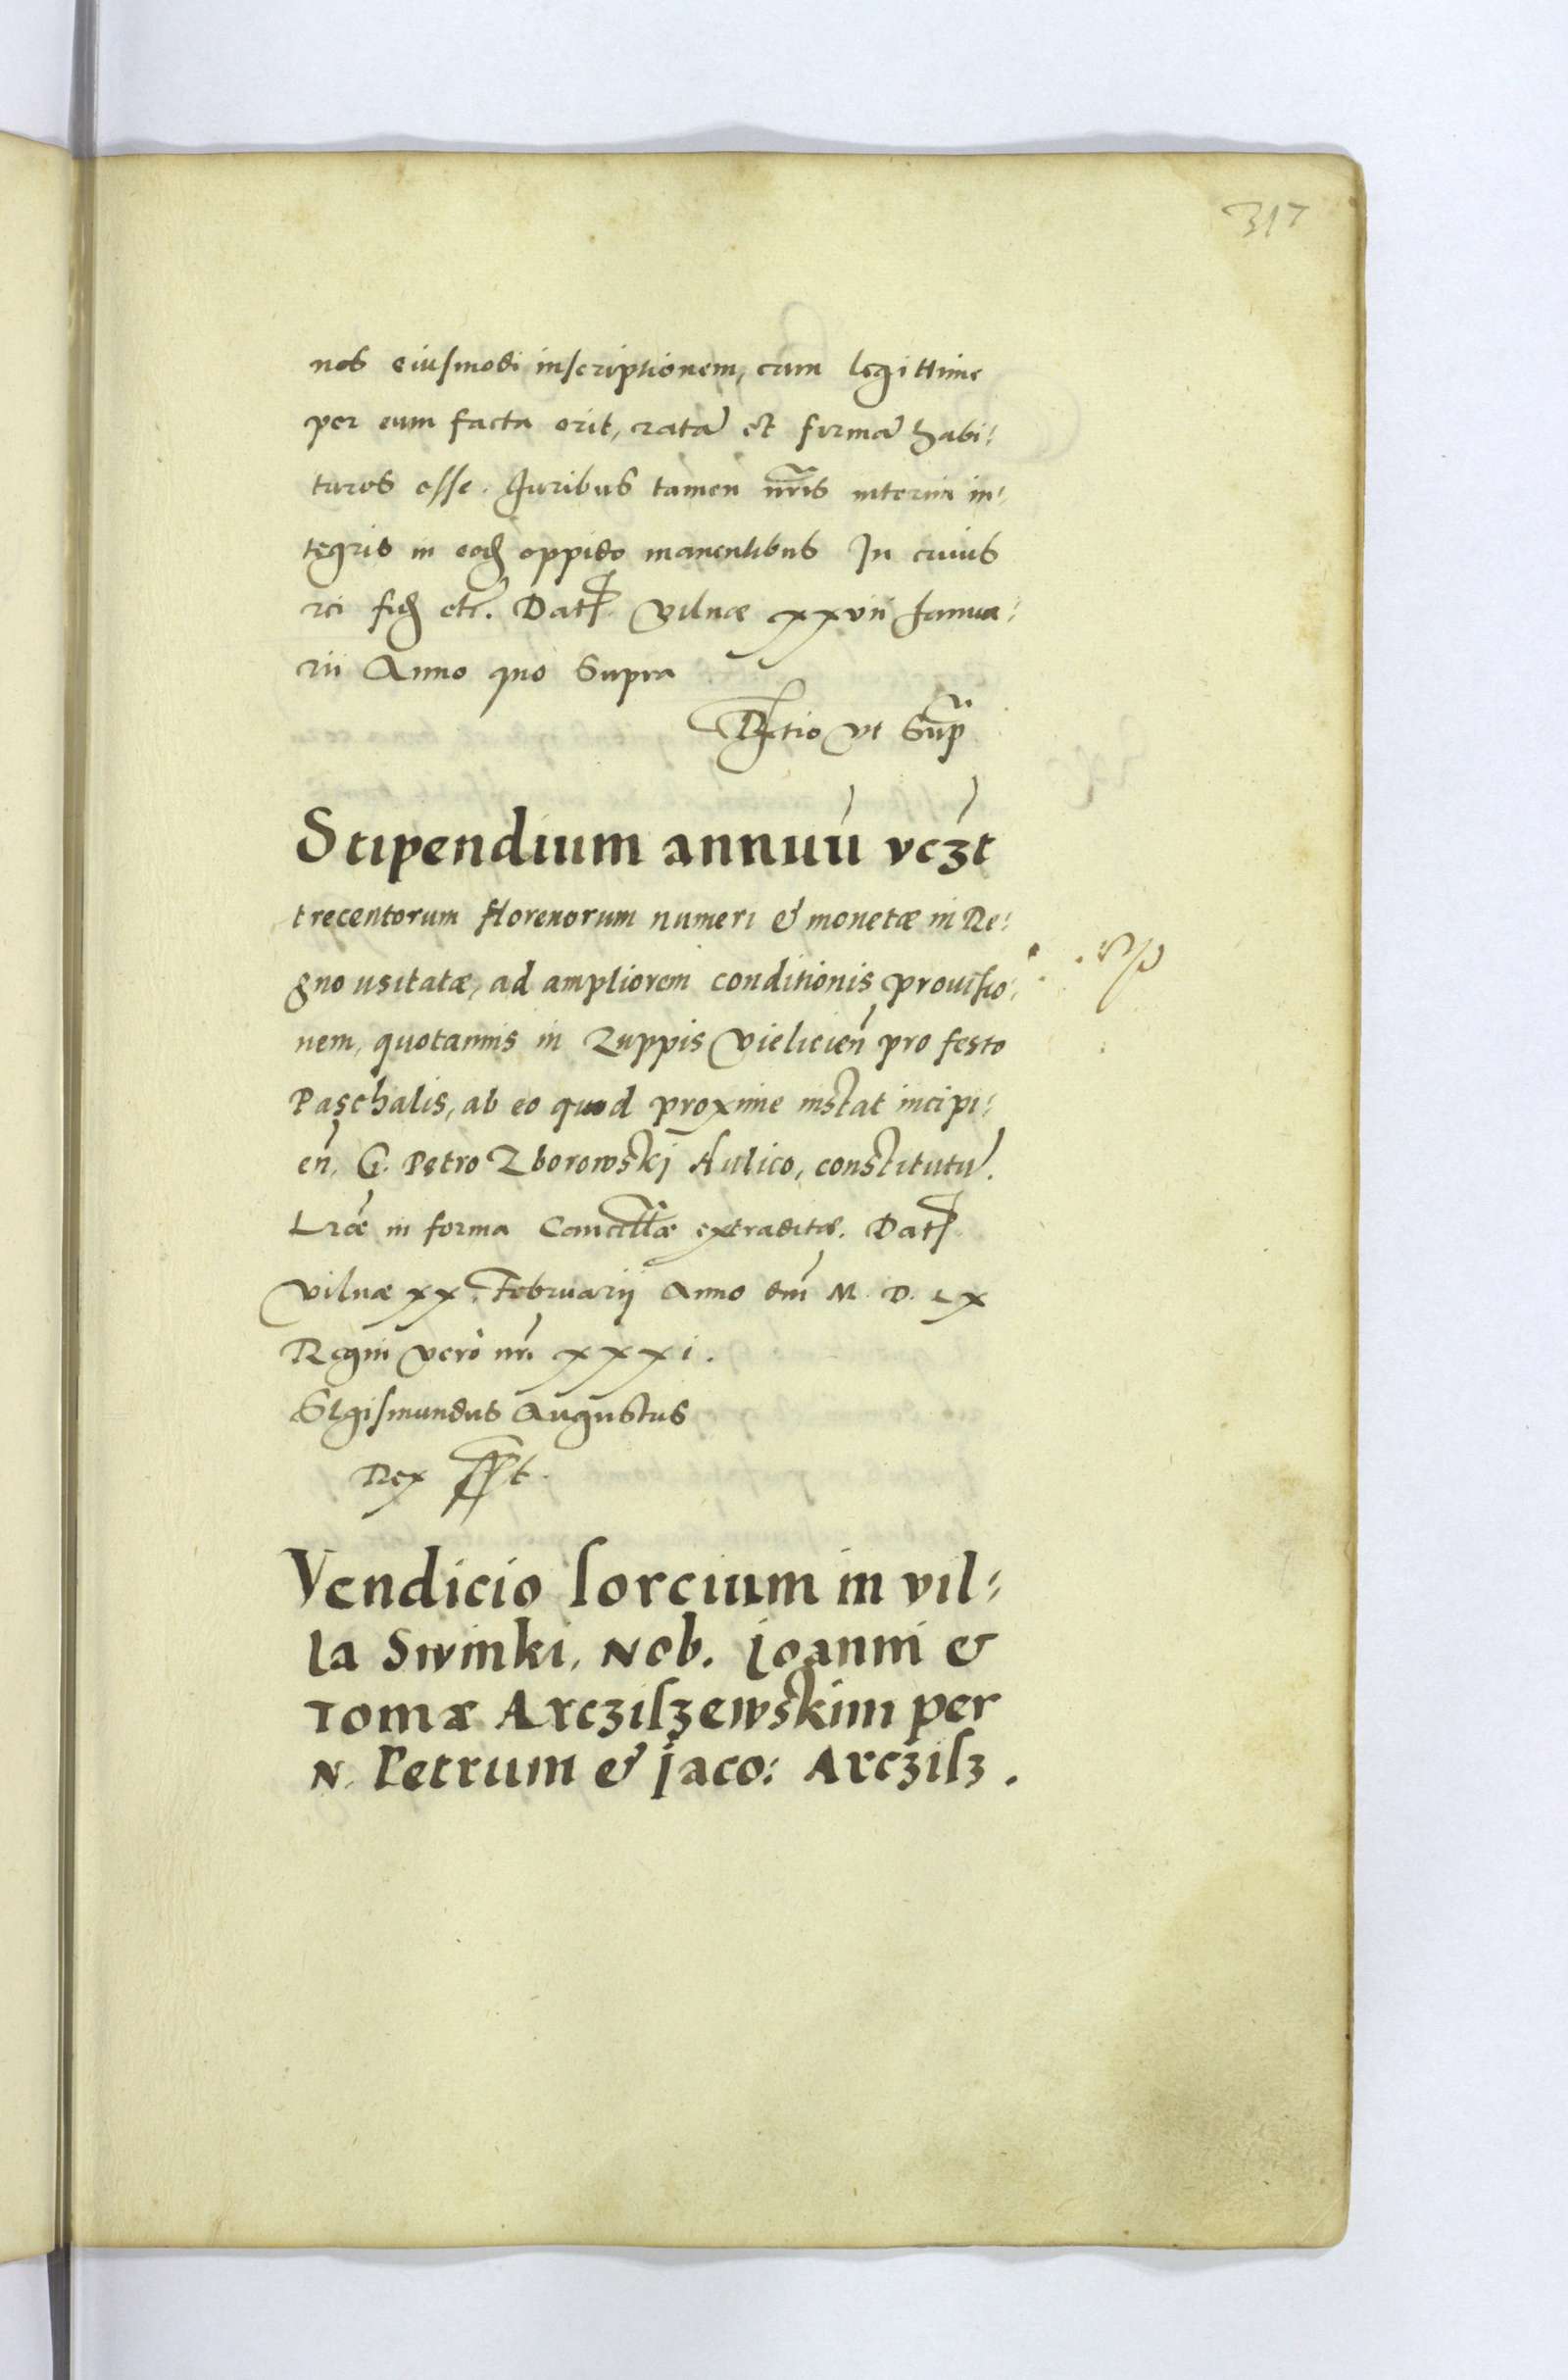 317
nos eiusmodi inscriptionem, cum legittime
per eum facta erit, ratã et firmã habi:
turos esse. Juribus tamen nr̃is interim in:
tegris in eođ oppido manentibus In cuius
rei fiđ etc. Dat. Vilnæ xxvii Janua:
rii Anno quo Supra
Rtio vt Sup̃
Stipendium annuũ vczt
trecentorum florenorum numeri & monetæ in Re:
gno usitatæ, ad ampliorem conditionis prouisio:
nem, quotannis in Zuppis Vielicien̄ pro festo
Paschalis, ab eo quod proxime instat incipi:
en̄. G. Petro Zborowski Aulico, constitutũ.
Lræ in forma Cancillæ extraditæ. Dat.
Vilnæ xx. Februarij Anno dn̄i M. D. Lx
Regni verò nr̃i xxxi.
Sigismundus Augustus
Rex sst.
Vendicio sorcium in vil:
la Swinki, Nob. Joanni &
Tomæ Arcziszewskim per
N. Petrum & Jaco: Arczisz.